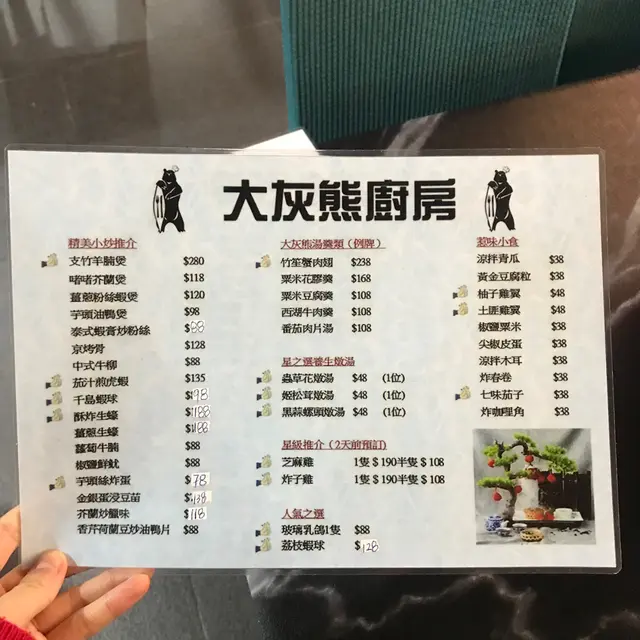 大灰熊廚房
精美小炒推介
支竹羊腩煲 $280
啫啫芥蘭煲 $118
薑蔥粉絲蝦煲 $120
芋頭油鴨煲 $98
泰式蝦膏炒粉絲 $88
京烤骨 $128
中式牛柳 $88
茄汁煎虎蝦 $135
千島蝦球 $98
酥炸生蠔 $188
薑蔥生蠔 $188
蘿蔔牛腩 $88
椒鹽鮮魷 $88
芋頭絲炸蛋 $78
金銀蛋浸豆苗 $138
芥蘭炒臘味 $118
香芹荷蘭豆炒油鴨片 $88
大灰熊湯羹類（例牌）
竹笙蟹肉翅 $238
粟米花膠羹 $168
粟米豆腐羹 $108
西湖牛肉羹 $108
番茄肉片湯 $108
星之選養生燉湯
蟲草花燉湯 $48 (1位)
姬松茸燉湯 $48 (1位)
黑蒜螺頭燉湯 $48 (1位)
星級推介（2天前預訂）
芝麻雞 1隻$190半隻$108
炸子雞 1隻$190半隻$108
人氣之選
玻璃乳鴿1隻 $88
荔枝蝦球 $128
惹味小食
涼拌青瓜 $38
黃金豆腐粒 $38
柚子雞翼 $48
土匪雞翼 $48
椒鹽粟米 $38
尖椒皮蛋 $38
涼拌木耳 $38
炸春卷 $38
七味茄子 $38
炸咖喱角 $38